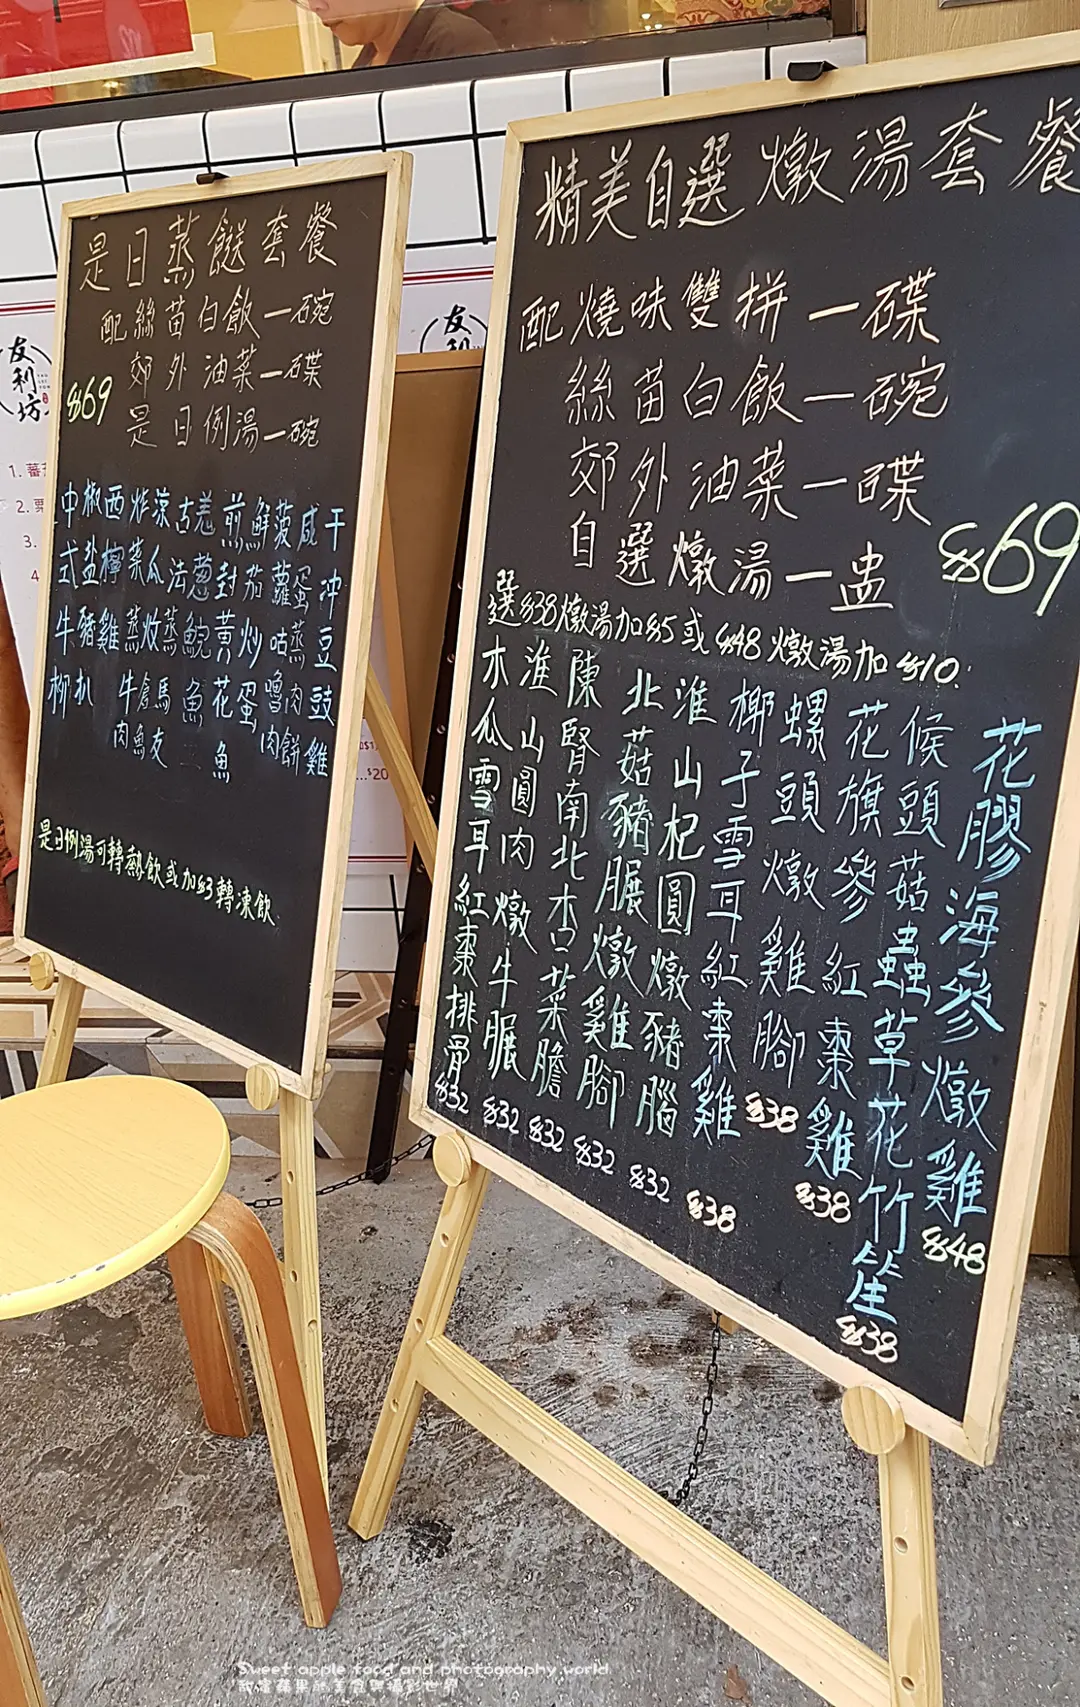 是日蒸餸套餐
配絲苗白飯一碗
郊外油菜一碟
$69
是日例湯一碗
中式牛柳
椒盐豬扒
西檸雞
炸菜蒸牛肉
涼瓜炆倉魚
古法蒸馬友
羌葱鯇魚
煎封黃花魚
鮮茄炒蛋
菠蘿咕嚕肉
咸蛋蒸肉餅
干沖豆豉雞
是日例湯可轉熱飲或加$3轉凍飲
精美自選燉湯套餐
配燒味雙拼一碟
絲苗白飯一碗
郊外油菜一碟
自選燉湯一盅
$69
選$38燉湯加$5或$48燉湯加$10.
木瓜雪耳紅棗排骨
$32
淮山圓肉燉牛𦟌
$32
陳腎南北杏菜膽
$32
北菇豬𦟌燉雞腳
$32
淮山杞圓燉豬腦
$32
椰子雪耳紅棗雞
$38
螺頭燉雞腳
$38
花旗參紅棗雞
$38
候頭菇蟲草花竹笙
$38
花膠海參燉雞
$48
友利坊
友利
1. 蕃
2. 栗
3.
4
Sweet apple food and photography world
甜蜜蘋果的美食與攝影世界